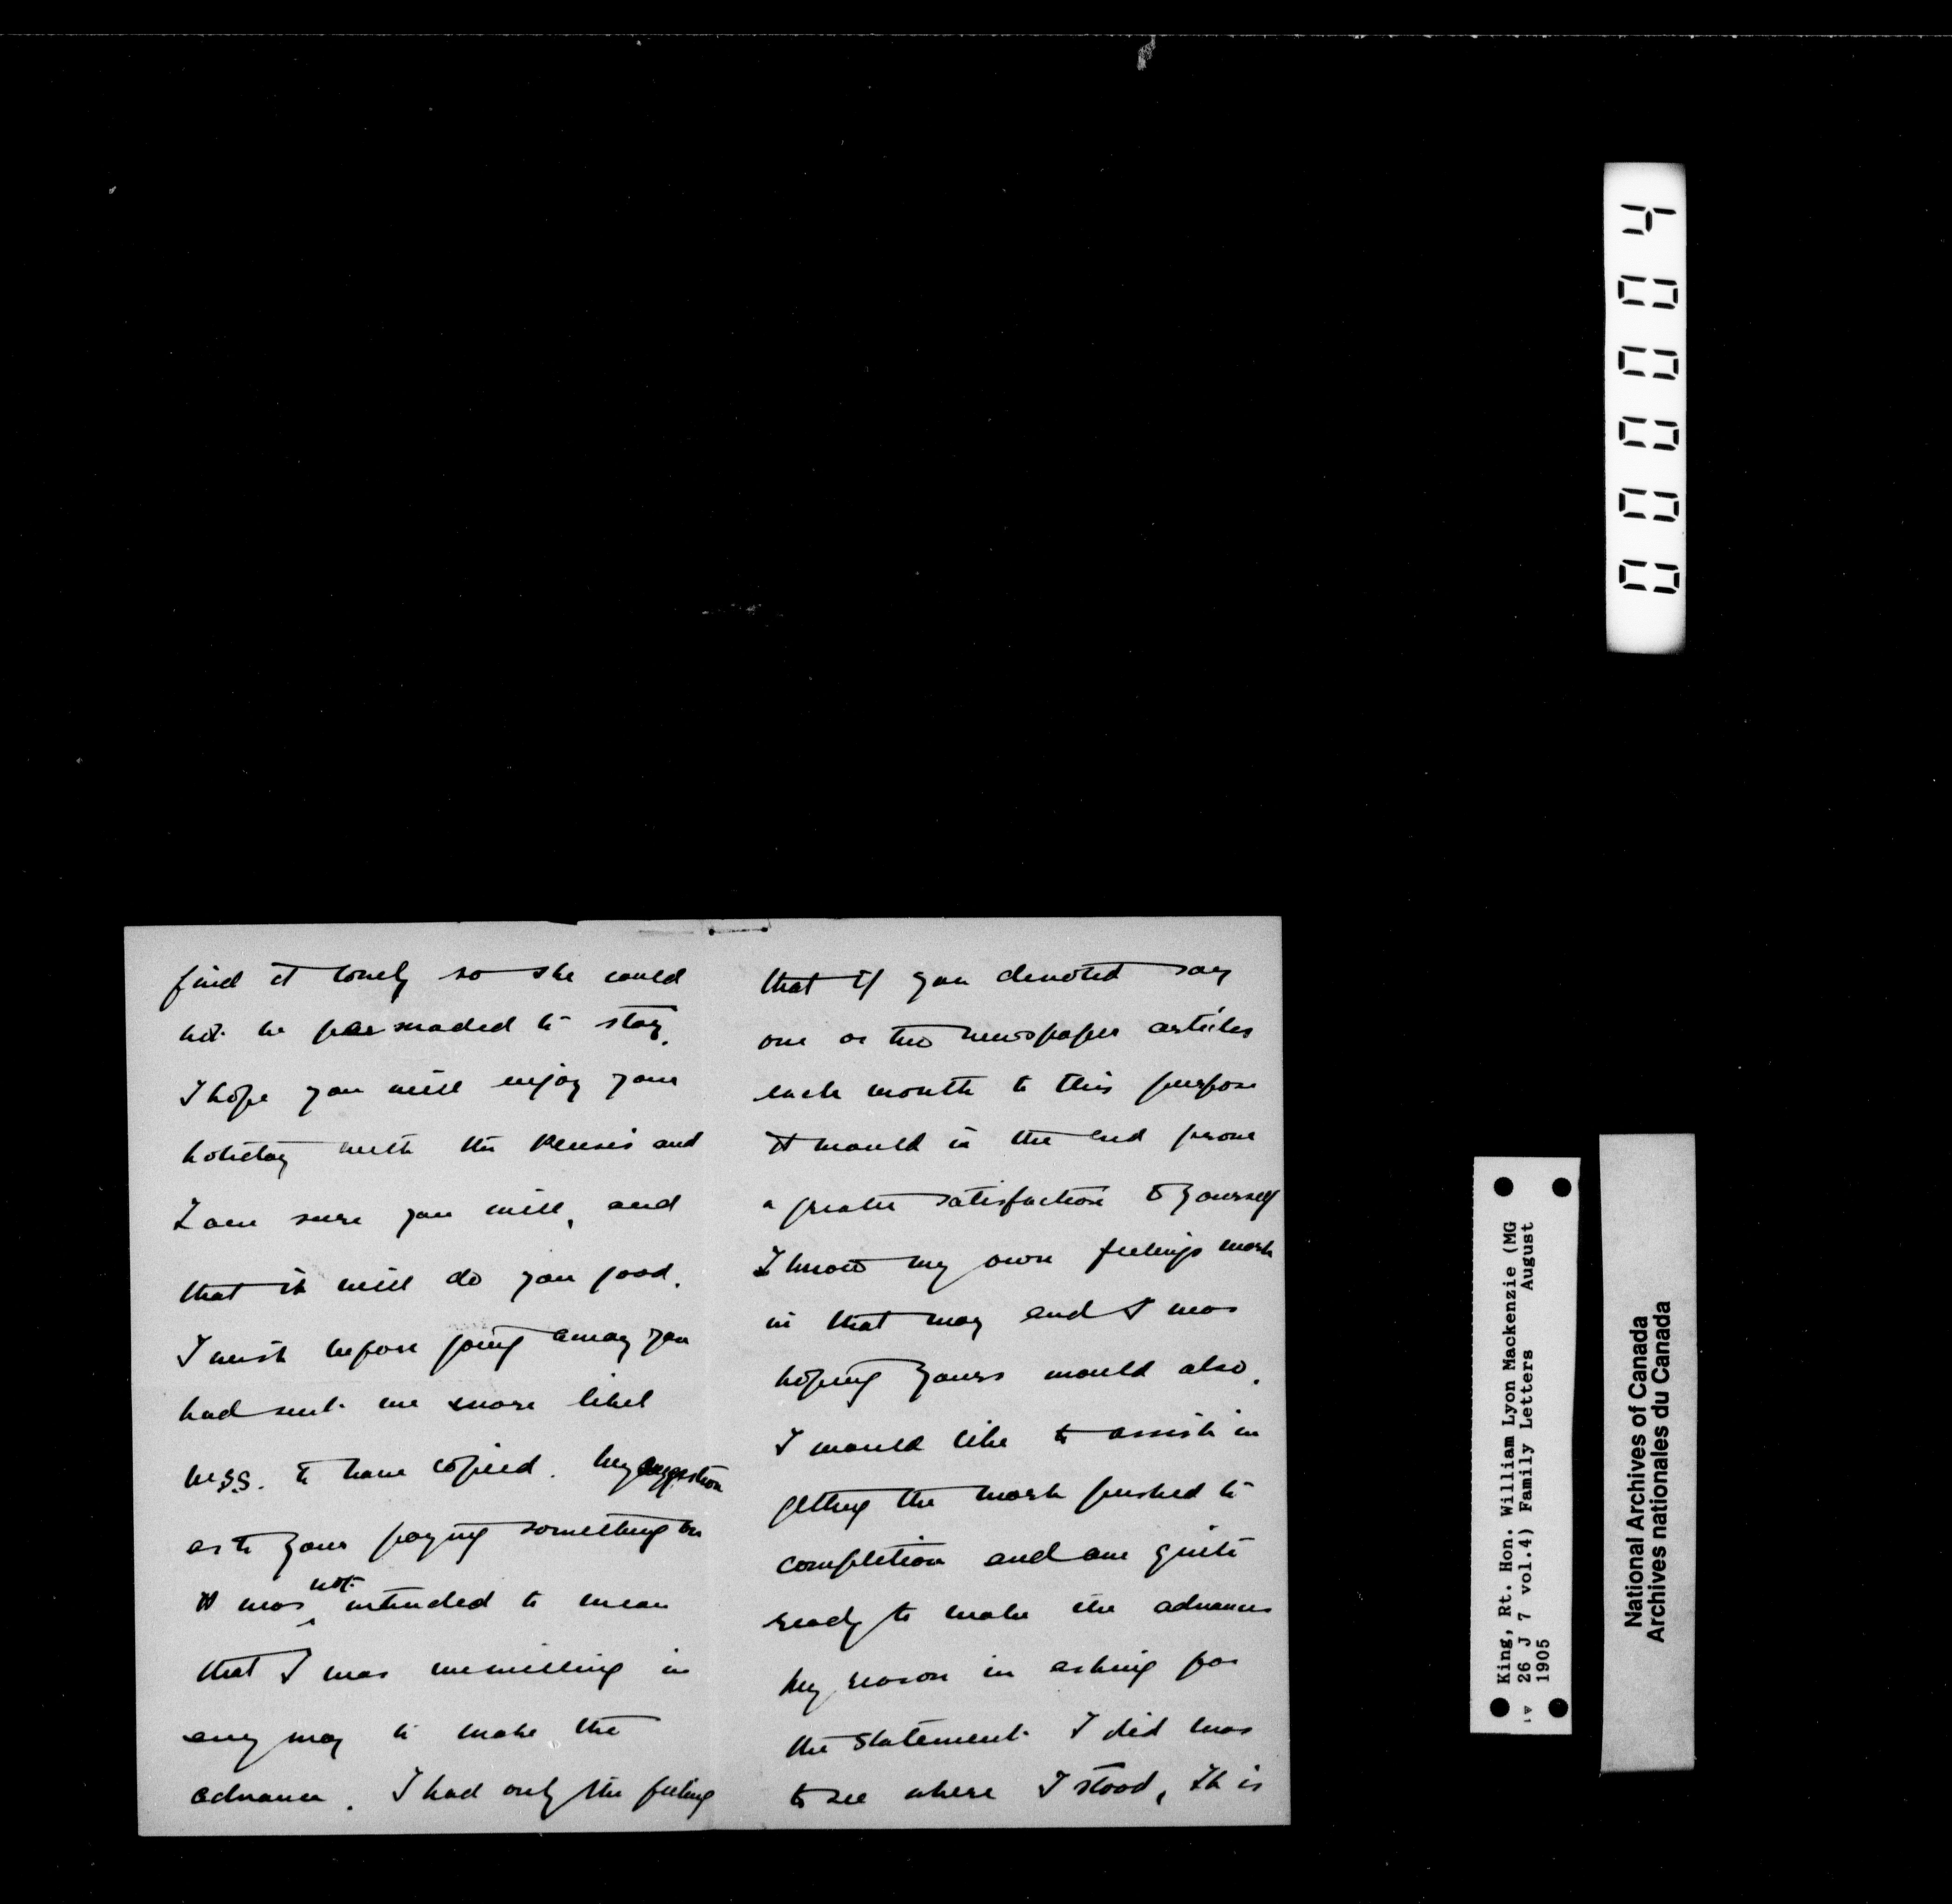 find it lonely so she could
not be persuaded to stay.
I hope you will enjoy your
holiday with the and
I am sure you will, and
that it will do you good.
I wish before going away you
had sent me more libel
mss. to have copied. My suggestion
as to your paying something on
it was not intended to mean
that I was unwilling in
any way to make the
advance. I had only the feeling
that if you devoted say
one or two newspaper articles
each month to this purpose
it would in the end prove
a greater satisfaction to yourself
I know my own feelings work
in that way and I was
hoping yours would also.
I would like to assist in
getting the work pushed to
completion and am quite
ready to make the advances
my reason in asking for
the statement I did was
to see where I stood, It is
400000
King, Rt. Hon. William Lyon Mackenzie (MG
26 J 7 vol.4) Family Letters August
1905
National Archives of Canada
Archives nationales du Canada